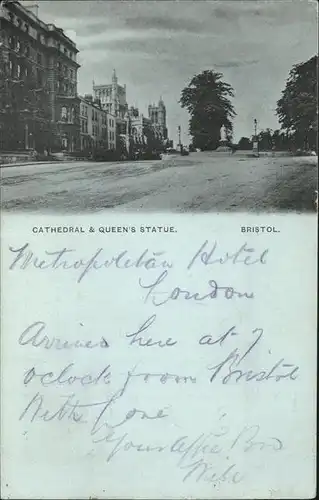 CATHEDRAL & QUEEN'S STATUE. BRISTOL.
Metropolitan Hotel
London
Arrived here at 7
oclock from Bristol
With Love
Your Affte Bro
Will